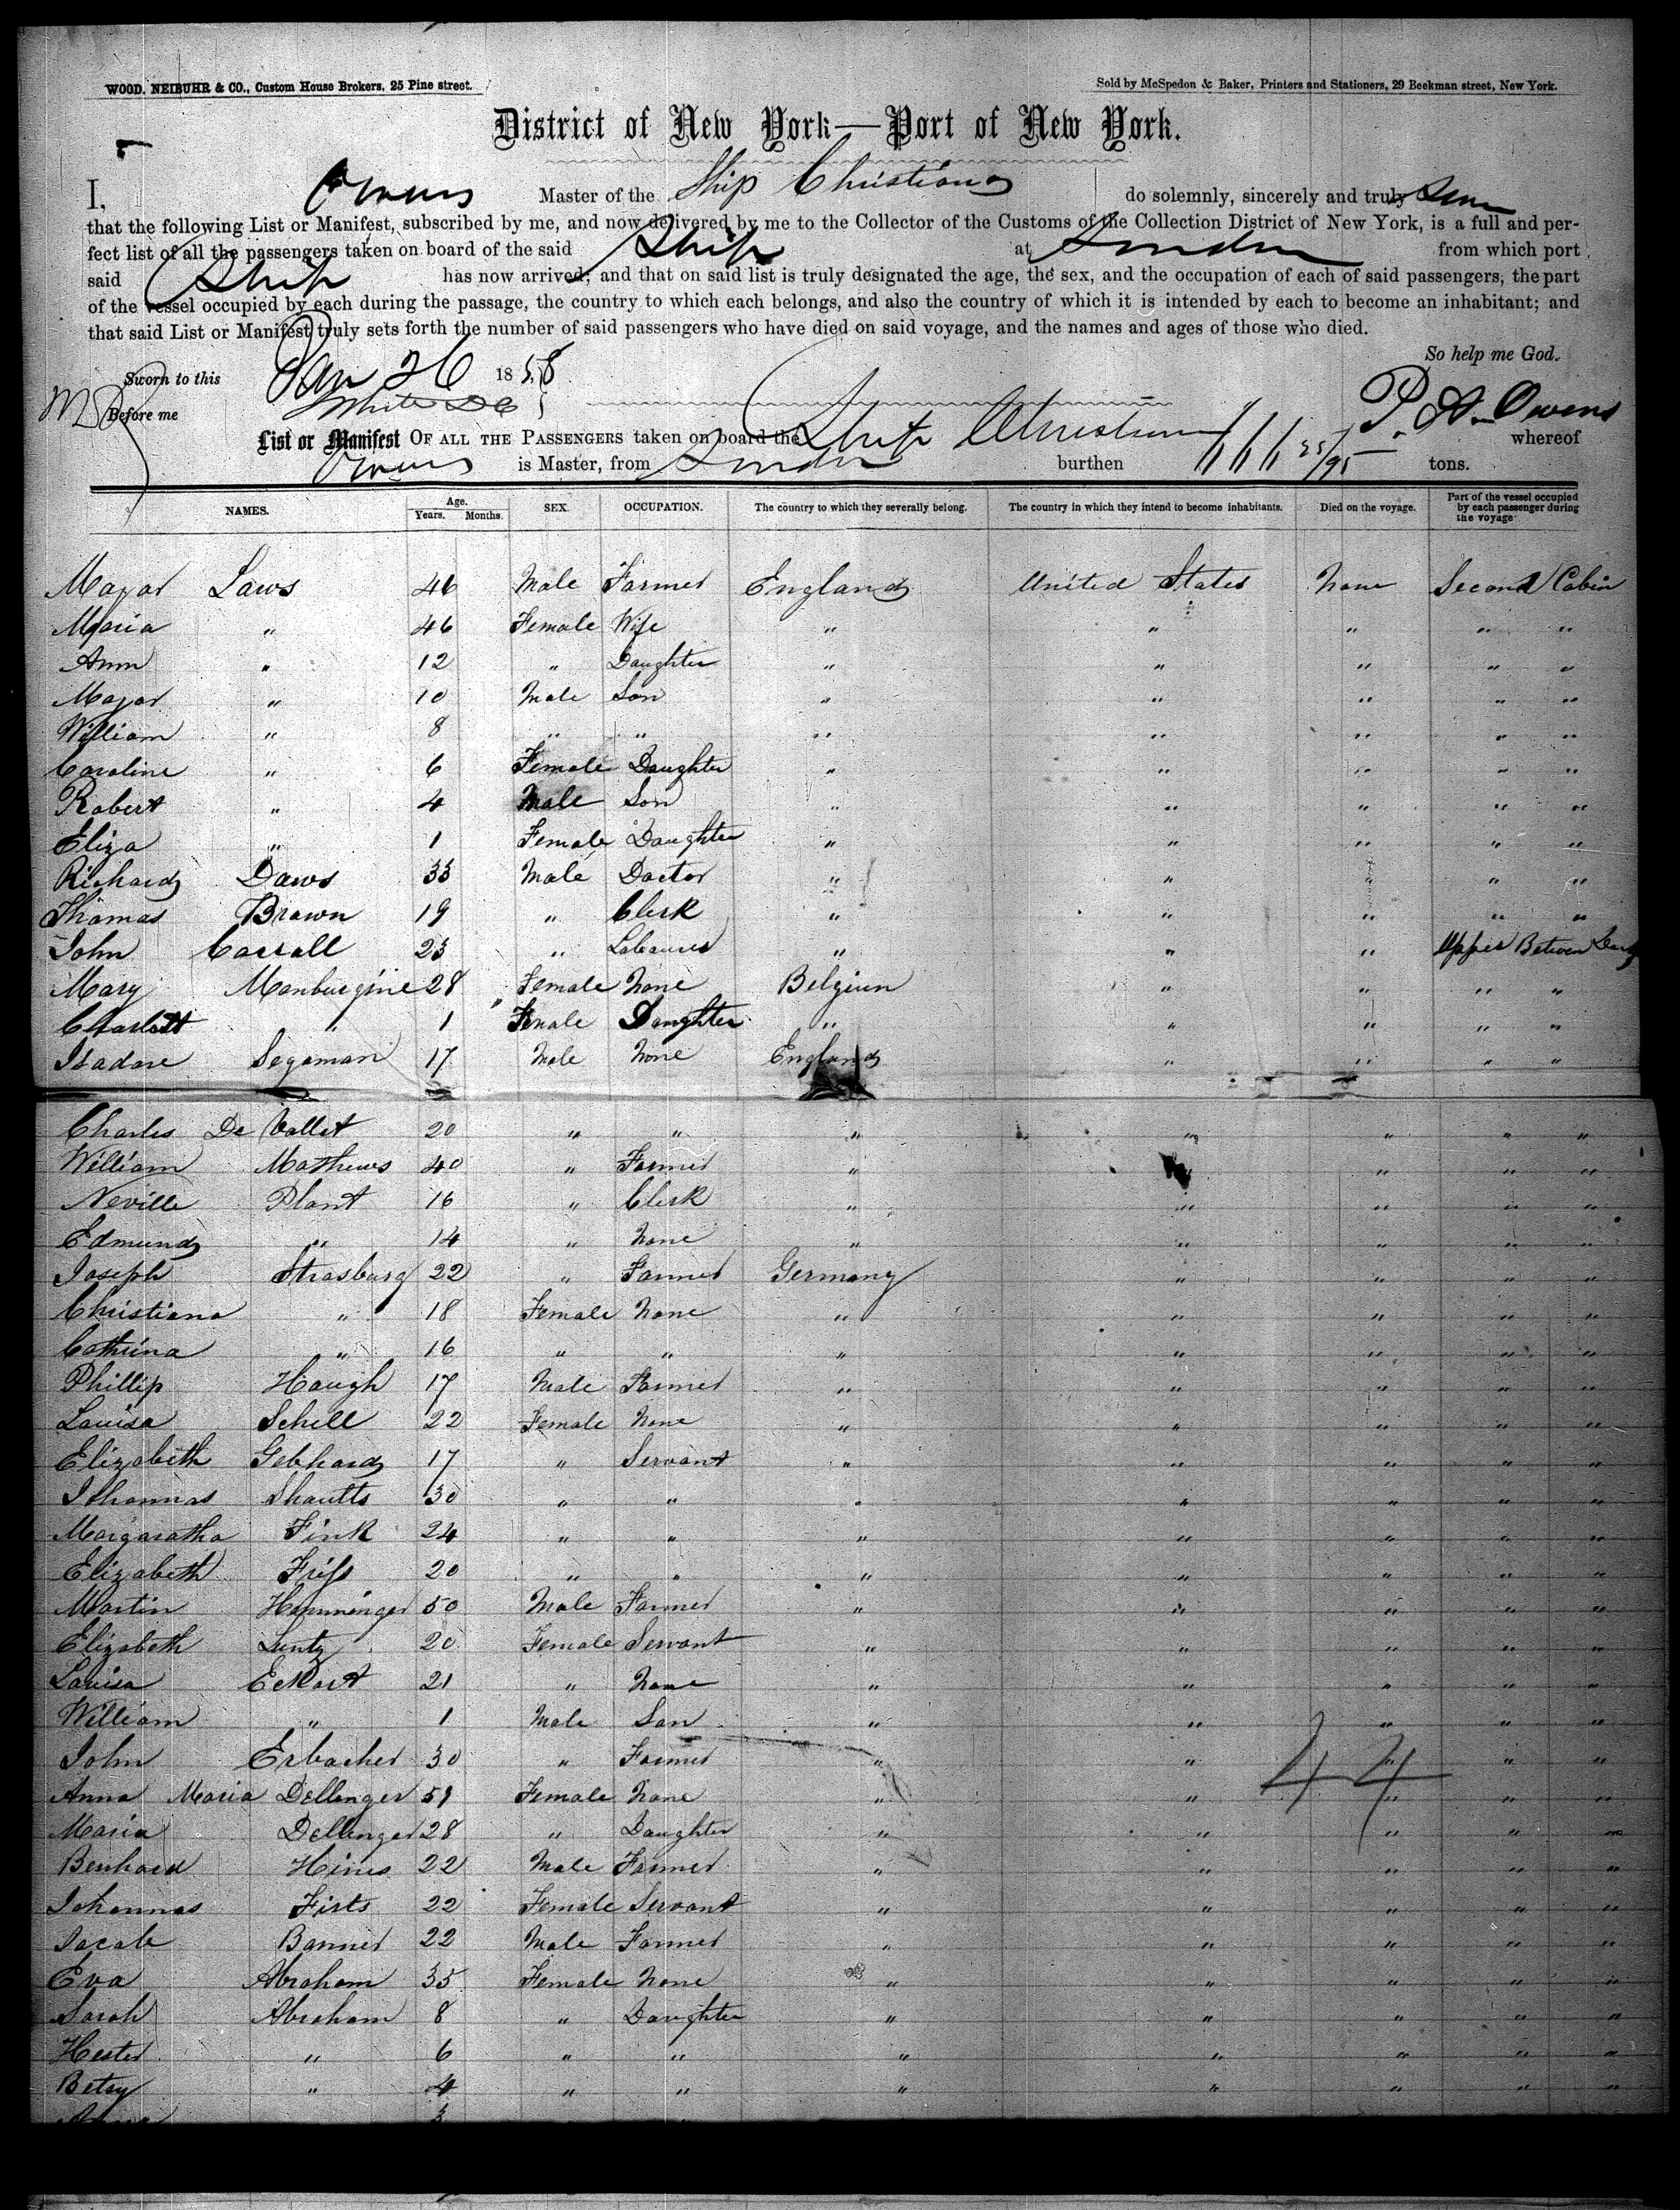 WOOD, NEIBUHR & CO., Custom House Brokers, 25 Pine street.
Sold by McSpedon & Baker, Printers and Stationers, 29 Beekman street, New York.
District of New York—Port of New York.
I, Owens Master of the Ship Christiana do solemnly, sincerely and truly
that the following List or Manifest, subscribed by me, and now delivered by me to the Collector of the Customs of the Collection District of New York, is a full and per-
fect list of all the passengers taken on board of the said Ship at London from which port
said Ship has now arrived; and that on said list is truly designated the age, the sex, and the occupation of each of said passengers, the part
of the vessel occupied by each during the passage, the country to which each belongs, and also the country of which it is intended by each to become an inhabitant; and
that said List or Manifest truly sets forth the number of said passengers who have died on said voyage, and the names and ages of those who died.
So help me God.
Sworn to this Jan 26 1858
Before me P. A. Owens
List or Manifest OF ALL THE PASSENGERS taken on board the Ship Christiana whereof
Owens is Master, from London burthen tons.
NAMES. Age. Years. Months. SEX. OCCUPATION. The country to which they severally belong. The country in which they intend to become inhabitants. Died on the voyage. Part of the vessel occupied by each passenger during the voyage
Major Laws 46 Male Farmer England United States None Second Cabin
Maria " 46 Female Wife " " " " "
Ann " 12 " Daughter " " " " "
Major " 10 Male Son " " " " "
William " 8 " " " " " " "
Caroline " 6 Female Daughter " " " " "
Robert " 4 Male Son " " " " "
Eliza " 1 Female Daughter " " " " "
Richard Daws 33 Male Doctor " " " " "
Thomas Brown 19 " Clerk " " " " "
John Carroll 23 " Labourer " " " Upper Between Decks
Mary Manburgine 28 Female None Belgium " " " "
Charlott " 1 Female Daughter " " " " "
Isadore Segaman 17 Male None England " " " "
Charles De Vallet 20 " " " " " " "
William Mathews 40 " Farmer " " " " "
Neville Plant 16 " Clerk " " " " "
Edmund " 14 " None " " " " "
Joseph Strasburg 22 " Farmer Germany " " " "
Christiana " 18 Female None " " " " "
Cathrina " 16 " " " " " " "
Phillip Haugh 17 Male Farmer " " " " "
Louisa Schell 22 Female None " " " " "
Elizabeth Gebhard 17 " Servant " " " " "
Johannas Shautts 30 " " " " " " "
Margaratha Fink 24 " " " " " " "
Elizabeth Friss 20 " " " " " " "
Martin Hamminger 50 Male Farmer " " " " "
Elizabeth Luntz 20 Female Servant " " " " "
Louisa Eckart 21 " None " " " " "
William " 1 Male Son " " " " "
John Erbacher 30 " Farmer " " " " "
44
Anna Maria Dellenger 59 Female None " " " " "
Maria Dellenger 28 " Daughter " " " " "
Benhard Hines 22 Male Farmer " " " " "
Johannas Firts 22 Female Servant " " " " "
Jacob Banner 22 Male Farmer " " " " "
Eva Abraham 35 Female None " " " " "
Sarah Abraham 8 " Daughter " " " " "
Hester " 6 " " " " " " "
Betsy " 4 " " " " " " "
3